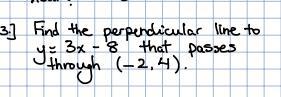 3.] Find the perpendicular line to
y = 3x - 8 that passes
through (-2, 4).